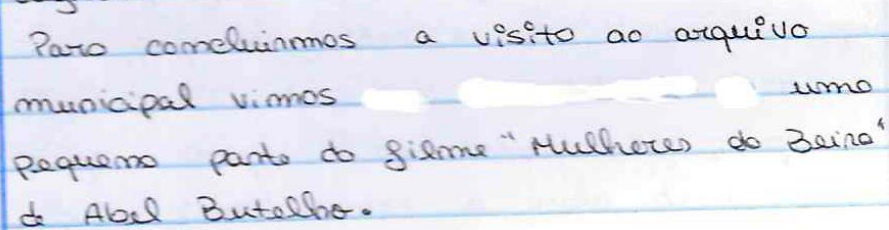 Para concluirmos a visita ao arquivo
municipal vimos uma
pequena parte do filme "Mulheres da Beira"
de Abel Butelho.